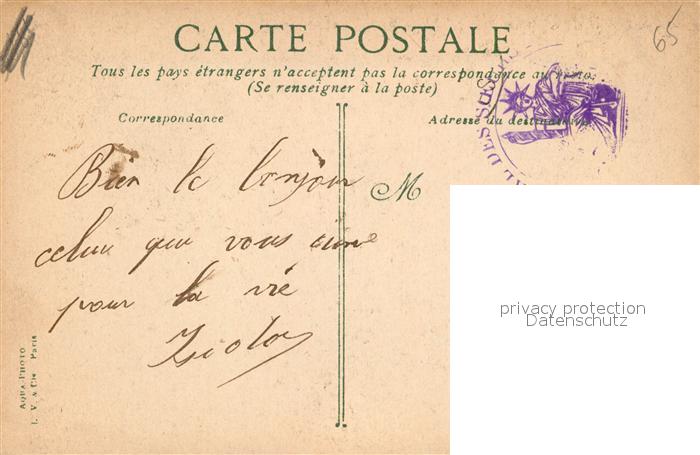 65
CARTE POSTALE
Tous les pays étrangers n'acceptent pas la correspondance au
(Se renseigner à la poste)
Correspondance
Adresse du destinataire
Bien le bonjour
celui que vous aime
pour la vie
M
privacy protection
Datenschutz
AQUA-PHOTO
L. V. & Cie Paris